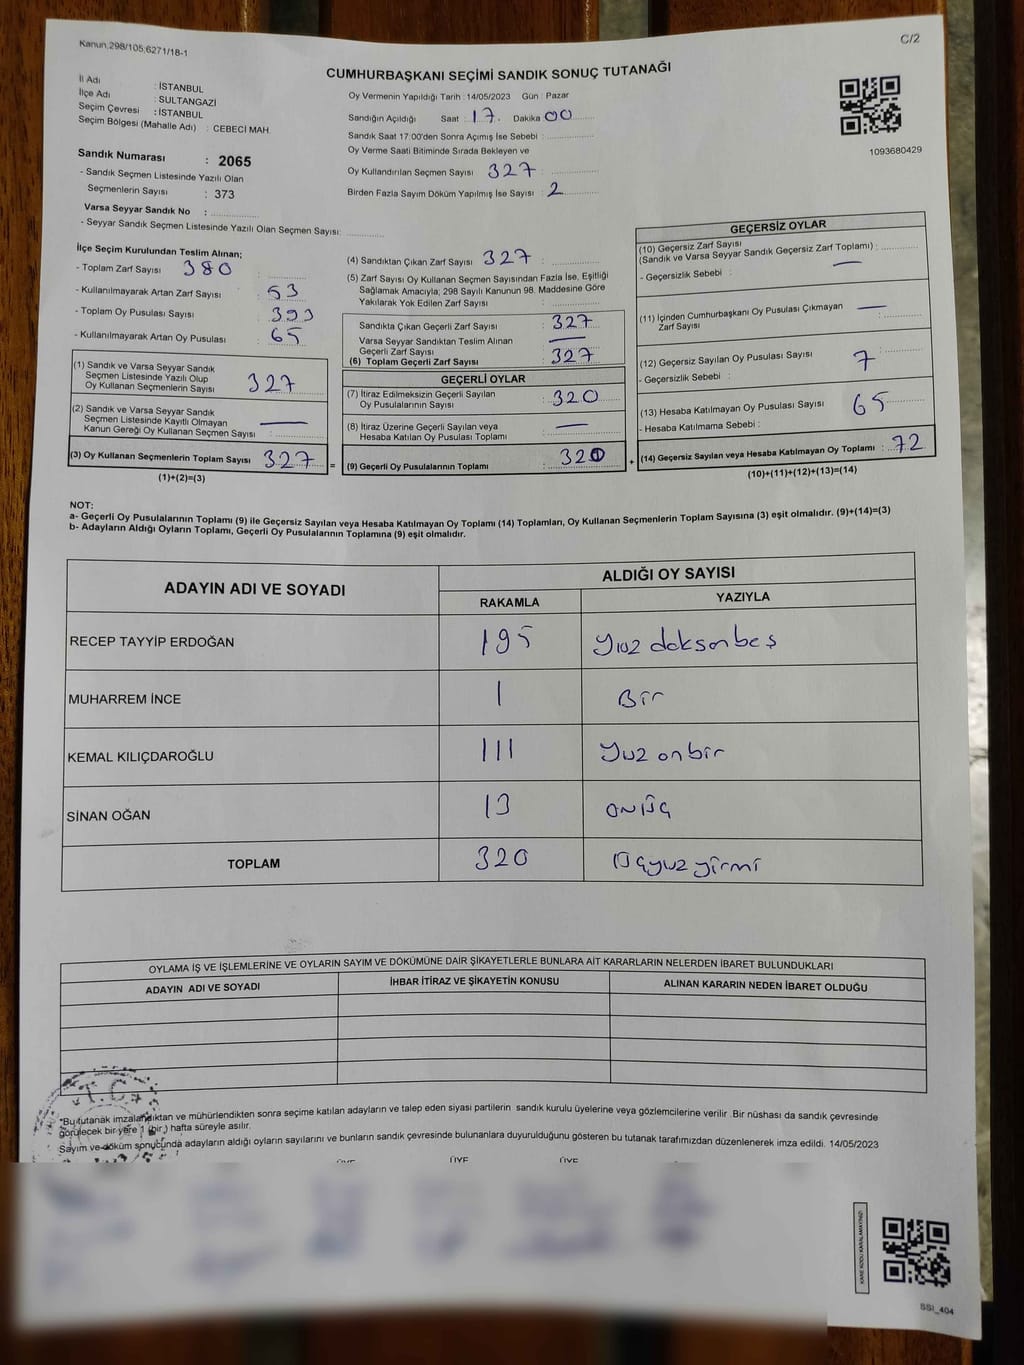 Kanun.298/105;6271/18-1
C/2
CUMHURBAŞKANI SEÇİMİ SANDIK SONUÇ TUTANAĞI
İl Adı : İSTANBUL
İlçe Adı : SULTANGAZİ
Seçim Çevresi : İSTANBUL
Seçim Bölgesi (Mahalle Adı) : CEBECİ MAH.
Sandık Numarası : 2065
- Sandık Seçmen Listesinde Yazılı Olan
Seçmenlerin Sayısı : 373
Varsa Seyyar Sandık No :
- Seyyar Sandık Seçmen Listesinde Yazılı Olan Seçmen Sayısı:
Oy Vermenin Yapıldığı Tarih : 14/05/2023 Gün : Pazar
Sandığın Açıldığı Saat : 17. Dakika 00
Sandık Saat 17:00'den Sonra Açımış İse Sebebi :
Oy Verme Saati Bitiminde Sırada Bekleyen ve
Oy Kullandırılan Seçmen Sayısı 327
Birden Fazla Sayım Döküm Yapılmış İse Sayısı : 2
1093680429
İlçe Seçim Kurulundan Teslim Alınan;
- Toplam Zarf Sayısı 380
- Kullanılmayarak Artan Zarf Sayısı : 53
- Toplam Oy Pusulası Sayısı : 393
- Kullanılmayarak Artan Oy Pusulası : 65
(1) Sandık ve Varsa Seyyar Sandık
Seçmen Listesinde Yazılı Olup
Oy Kullanan Seçmenlerin Sayısı 327
(2) Sandık ve Varsa Seyyar Sandık
Seçmen Listesinde Kayıtlı Olmayan
Kanun Gereği Oy Kullanan Seçmen Sayısı : —
(3) Oy Kullanan Seçmenlerin Toplam Sayısı 327 =
(1)+(2)=(3)
(4) Sandıktan Çıkan Zarf Sayısı 327
(5) Zarf Sayısı Oy Kullanan Seçmen Sayısından Fazla İse, Eşitliği
Sağlamak Amacıyla; 298 Sayılı Kanunun 98. Maddesine Göre
Yakılarak Yok Edilen Zarf Sayısı :
Sandıkta Çıkan Geçerli Zarf Sayısı : 327
Varsa Seyyar Sandıktan Teslim Alınan
Geçerli Zarf Sayısı —
(6) Toplam Geçerli Zarf Sayısı : 327
GEÇERLİ OYLAR
(7) İtiraz Edilmeksizin Geçerli Sayılan
Oy Pusulalarının Sayısı : 320
(8) İtiraz Üzerine Geçerli Sayılan veya
Hesaba Katılan Oy Pusulası Toplamı : —
(9) Geçerli Oy Pusulalarının Toplamı : 320 +
GEÇERSİZ OYLAR
(10) Geçersiz Zarf Sayısı
(Sandık ve Varsa Seyyar Sandık Geçersiz Zarf Toplamı) : —
- Geçersizlik Sebebi :
(11) İçinden Cumhurbaşkanı Oy Pusulası Çıkmayan —
Zarf Sayısı :
(12) Geçersiz Sayılan Oy Pusulası Sayısı : 7
- Geçersizlik Sebebi :
(13) Hesaba Katılmayan Oy Pusulası Sayısı : 65
- Hesaba Katılmama Sebebi :
(14) Geçersiz Sayılan veya Hesaba Katılmayan Oy Toplamı : 72
(10)+(11)+(12)+(13)=(14)
NOT:
a- Geçerli Oy Pusulalarının Toplamı (9) ile Geçersiz Sayılan veya Hesaba Katılmayan Oy Toplamı (14) Toplamları, Oy Kullanan Seçmenlerin Toplam Sayısına (3) eşit olmalıdır. (9)+(14)=(3)
b- Adayların Aldığı Oyların Toplamı, Geçerli Oy Pusulalarının Toplamına (9) eşit olmalıdır.
ADAYIN ADI VE SOYADI
ALDIĞI OY SAYISI
RAKAMLA YAZIYLA
RECEP TAYYİP ERDOĞAN 195 Yüz doksanbeş
MUHARREM İNCE 1 Bir
KEMAL KILIÇDAROĞLU 111 Yüz onbir
SİNAN OĞAN 13 onüç
TOPLAM 320 Üçyüz yirmi
OYLAMA İŞ VE İŞLEMLERİNE VE OYLARIN SAYIM VE DÖKÜMÜNE DAİR ŞİKAYETLERLE BUNLARA AİT KARARLARIN NELERDEN İBARET BULUNDUKLARI
ADAYIN ADI VE SOYADI İHBAR İTİRAZ VE ŞİKAYETİN KONUSU ALINAN KARARIN NEDEN İBARET OLDUĞU
T.C.
*Bu tutanak imzalandıktan ve mühürlendikten sonra seçime katılan adayların ve talep eden siyasi partilerin sandık kurulu üyelerine veya gözlemcilerine verilir .Bir nüshası da sandık çevresinde
görülecek bir yere 1 (bir) hafta süreyle asılır.
Sayım ve döküm sonucunda adayların aldığı oyların sayılarını ve bunların sandık çevresinde bulunanlara duyurulduğunu gösteren bu tutanak tarafımızdan düzenlenerek imza edildi. 14/05/2023
ÜYE ÜYE ÜYE
KARE KODU KARALAMAYINIZ!
SSI_404